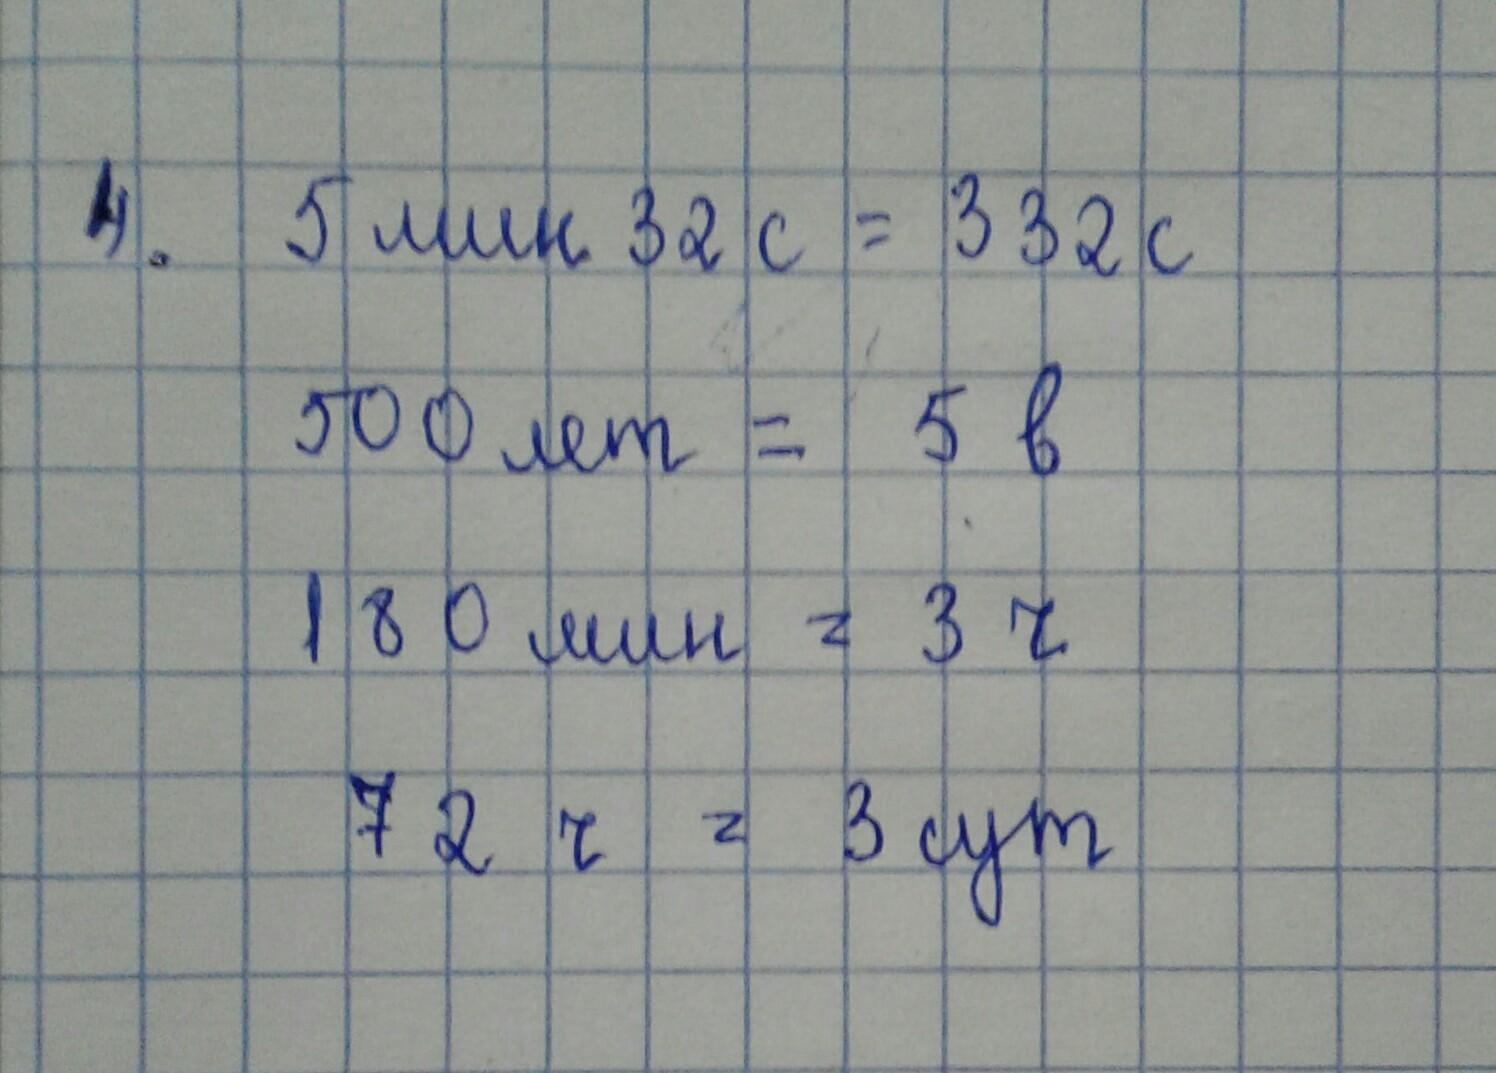 4. 5 мин 32 с = 332 с
500 лет = 5 в
180 мин = 3 ч
72 ч = 3 сут